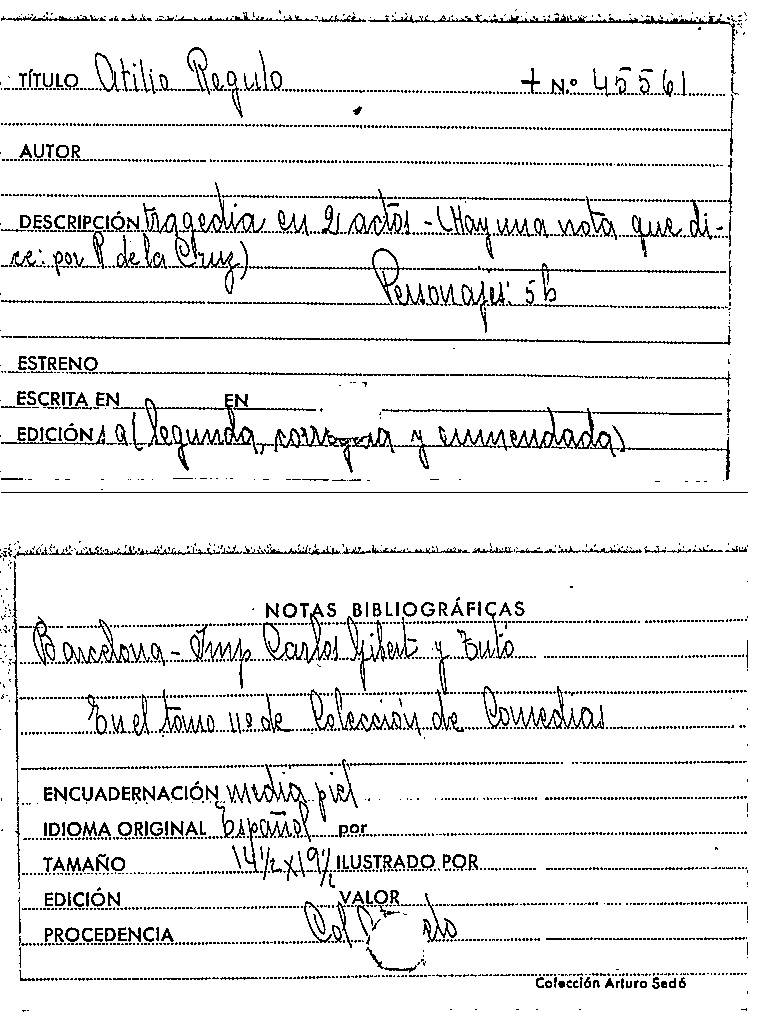 TÍTULO Atilio Regulo + N.º 45561
AUTOR
DESCRIPCIÓN tragedia en 2 actos - (Hay una nota que di-
ce: por P de la Cruz)
Personajes: 5 b
ESTRENO
ESCRITA EN EN
EDICIÓN s a (Segunda, corregida y enmendada)
NOTAS BIBLIOGRÁFICAS
Barcelona - Imp Carlos Gibert y Tutó
En el tomo 11º de Colección de Comedias
ENCUADERNACIÓN media piel
IDIOMA ORIGINAL Español por
TAMAÑO 14½ x 19½ ILUSTRADO POR
EDICIÓN VALOR
PROCEDENCIA Col
Colección Arturo Sedó